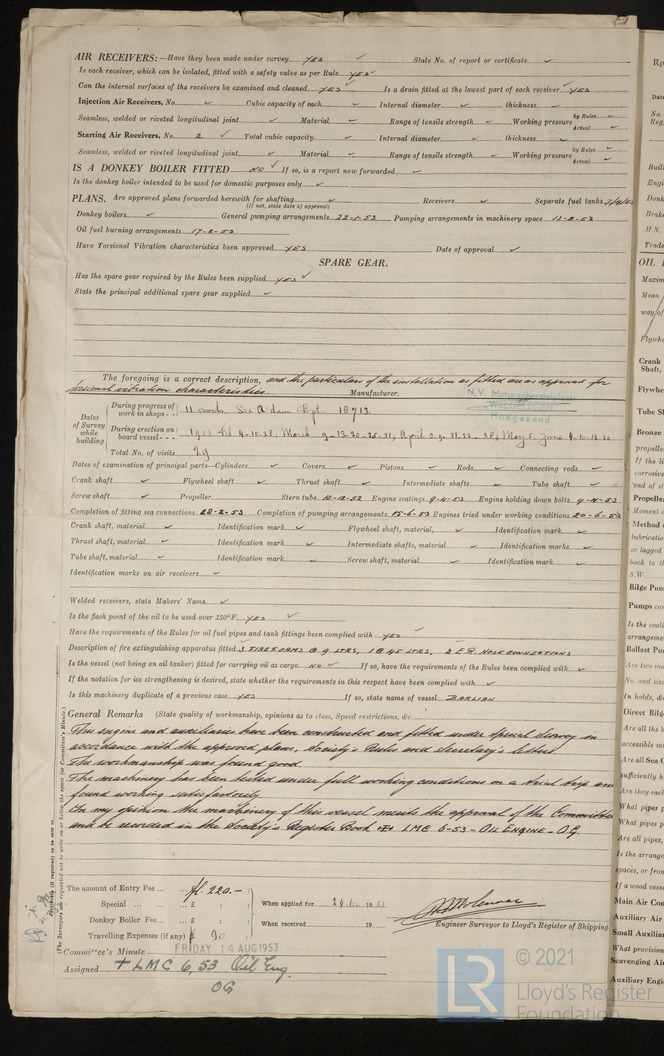 AIR RECEIVERS:—Have they been made under survey YES ✓ State No. of report or certificate ✓
Is each receiver, which can be isolated, fitted with a safety valve as per Rule YES ✓
Can the internal surfaces of the receivers be examined and cleaned YES ✓ Is a drain fitted at the lowest part of each receiver ✓ YES
Injection Air Receivers, No. ✓ Cubic capacity of each ✓ Internal diameter ✓ thickness ✓
Seamless, welded or riveted longitudinal joint ✓ Material ✓ Range of tensile strength ✓ Working pressure by Rules ✓ Actual ✓
Starting Air Receivers, No. 2 ✓ Total cubic capacity ✓ Internal diameter ✓ thickness ✓
Seamless, welded or riveted longitudinal joint ✓ Material ✓ Range of tensile strength ✓ Working pressure by Rules ✓ Actual ✓
IS A DONKEY BOILER FITTED NO ✓ If so, is a report now forwarded ✓
Is the donkey boiler intended to be used for domestic purposes only ✓
PLANS. Are approved plans forwarded herewith for shafting ✓ Receivers ✓ Separate fuel tanks
(If not, state date of approval)
Donkey boilers ✓ General pumping arrangements 22-1-53 Pumping arrangements in machinery space 13-2-53
Oil fuel burning arrangements 17-2-53
Have Torsional Vibration characteristics been approved YES Date of approval ✓
SPARE GEAR.
Has the spare gear required by the Rules been supplied YES ✓
State the principal additional spare gear supplied ✓
The foregoing is a correct description, and the particulars of the installation as fitted are as approved for
torsional vibration characteristics. Manufacturer.
N.V. Motorenfabriek
Hoogezand
Dates of Survey while building
During progress of work in shops - - 11 work, See A'dam Rpt. 18713
During erection on board vessel - - - 1953 Feb 4.10.28, March 9-13-20-25-31, April
Total No. of visits 29
Dates of examination of principal parts—Cylinders ✓ Covers ✓ Pistons ✓ Rods ✓ Connecting rods ✓
Crank shaft ✓ Flywheel shaft ✓ Thrust shaft ✓ Intermediate shafts ✓ Tube shaft ✓
Screw shaft ✓ Propeller Stern tube 10-12-52 Engine seatings 9-4-53 Engine holding down bolts 9-4-53
Completion of fitting sea connections 28-2-53 Completion of pumping arrangements 15-6-53 Engines tried under working conditions 20-6-53
Crank shaft, material ✓ Identification mark ✓ Flywheel shaft, material ✓ Identification mark ✓
Thrust shaft, material ✓ Identification mark ✓ Intermediate shafts, material ✓ Identification marks ✓
Tube shaft, material ✓ Identification mark ✓ Screw shaft, material ✓ Identification mark ✓
Identification marks on air receivers ✓
Welded receivers, state Makers' Name ✓
Is the flash point of the oil to be used over 150°F. YES ✓
Have the requirements of the Rules for oil fuel pipes and tank fittings been complied with YES ✓
Description of fire extinguishing apparatus fitted 3 FIREFOAMS @ 9 LTRS, 1 @ 45 LTRS, 2 E.R. HOSECONNECTIONS
Is the vessel (not being an oil tanker) fitted for carrying oil as cargo NO ✓ If so, have the requirements of the Rules been complied with ✓
If the notation for ice strengthening is desired, state whether the requirements in this respect have been complied with ✓
Is this machinery duplicate of a previous case YES If so, state name of vessel BARLIAN
General Remarks (State quality of workmanship, opinions as to class, Speed restrictions, &c.
This engine and auxiliaries have been constructed and fitted under special survey in
accordance with the approved plans, Society's Rules and Secretary's letters.
The workmanship was found good.
The machinery has been tested under full working conditions on a trial trip and
found working satisfactorily.
In my opinion the machinery of this vessel merits the approval of the Committee
and be recorded in the Society's Register Book LMC 6-53 - OIL ENGINE - O.G.
The amount of Entry Fee ... fl. 220.-
Special ... £ : : When applied for 24.6. 1953
Donkey Boiler Fee... £ : : When received 19
Travelling Expenses (if any) £ 90
Engineer Surveyor to Lloyd's Register of Shipping
Committee's Minute FRIDAY 14 AUG 1953
Assigned + LMC 6,53 Oil Eng.
OG
(The Surveyors are requested not to write on or below the space for Committee's Minute.)
© 2021
LR Lloyd's Register
Foundation